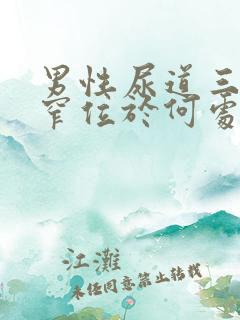 男性尿道三
窄位於何處
江灘
未任同意禁止转载